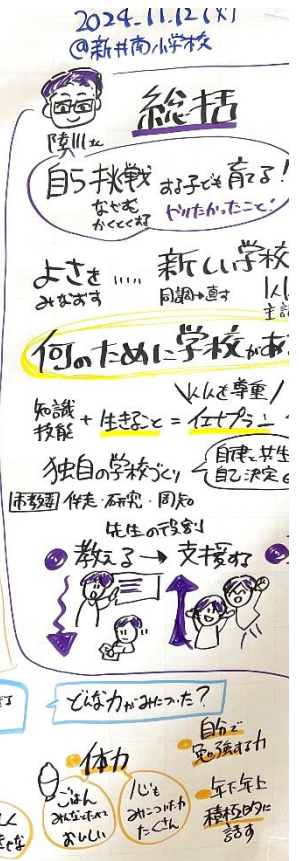 2024.11.12(火)
@新井南小学校
総括
自ら挑戦する子ども育てる!
なやむ
かくとくする
やりたかったこと!
よさを ..... 新しい学校
みなおす 同調→直す
何のために学校があ
人人を尊重
知識
技能 + 生きること = イエナプラン
独自の学校づくり
自律と共生
自己決定
市教委 伴走・研究・周知
先生の役割
教える → 支援する
どんな力がみについた?
体力
ごはん
みんなでたべて
おいしい
心も
みについた力
たくさん
自分で
勉強する力
年下年上
積極的に
話す